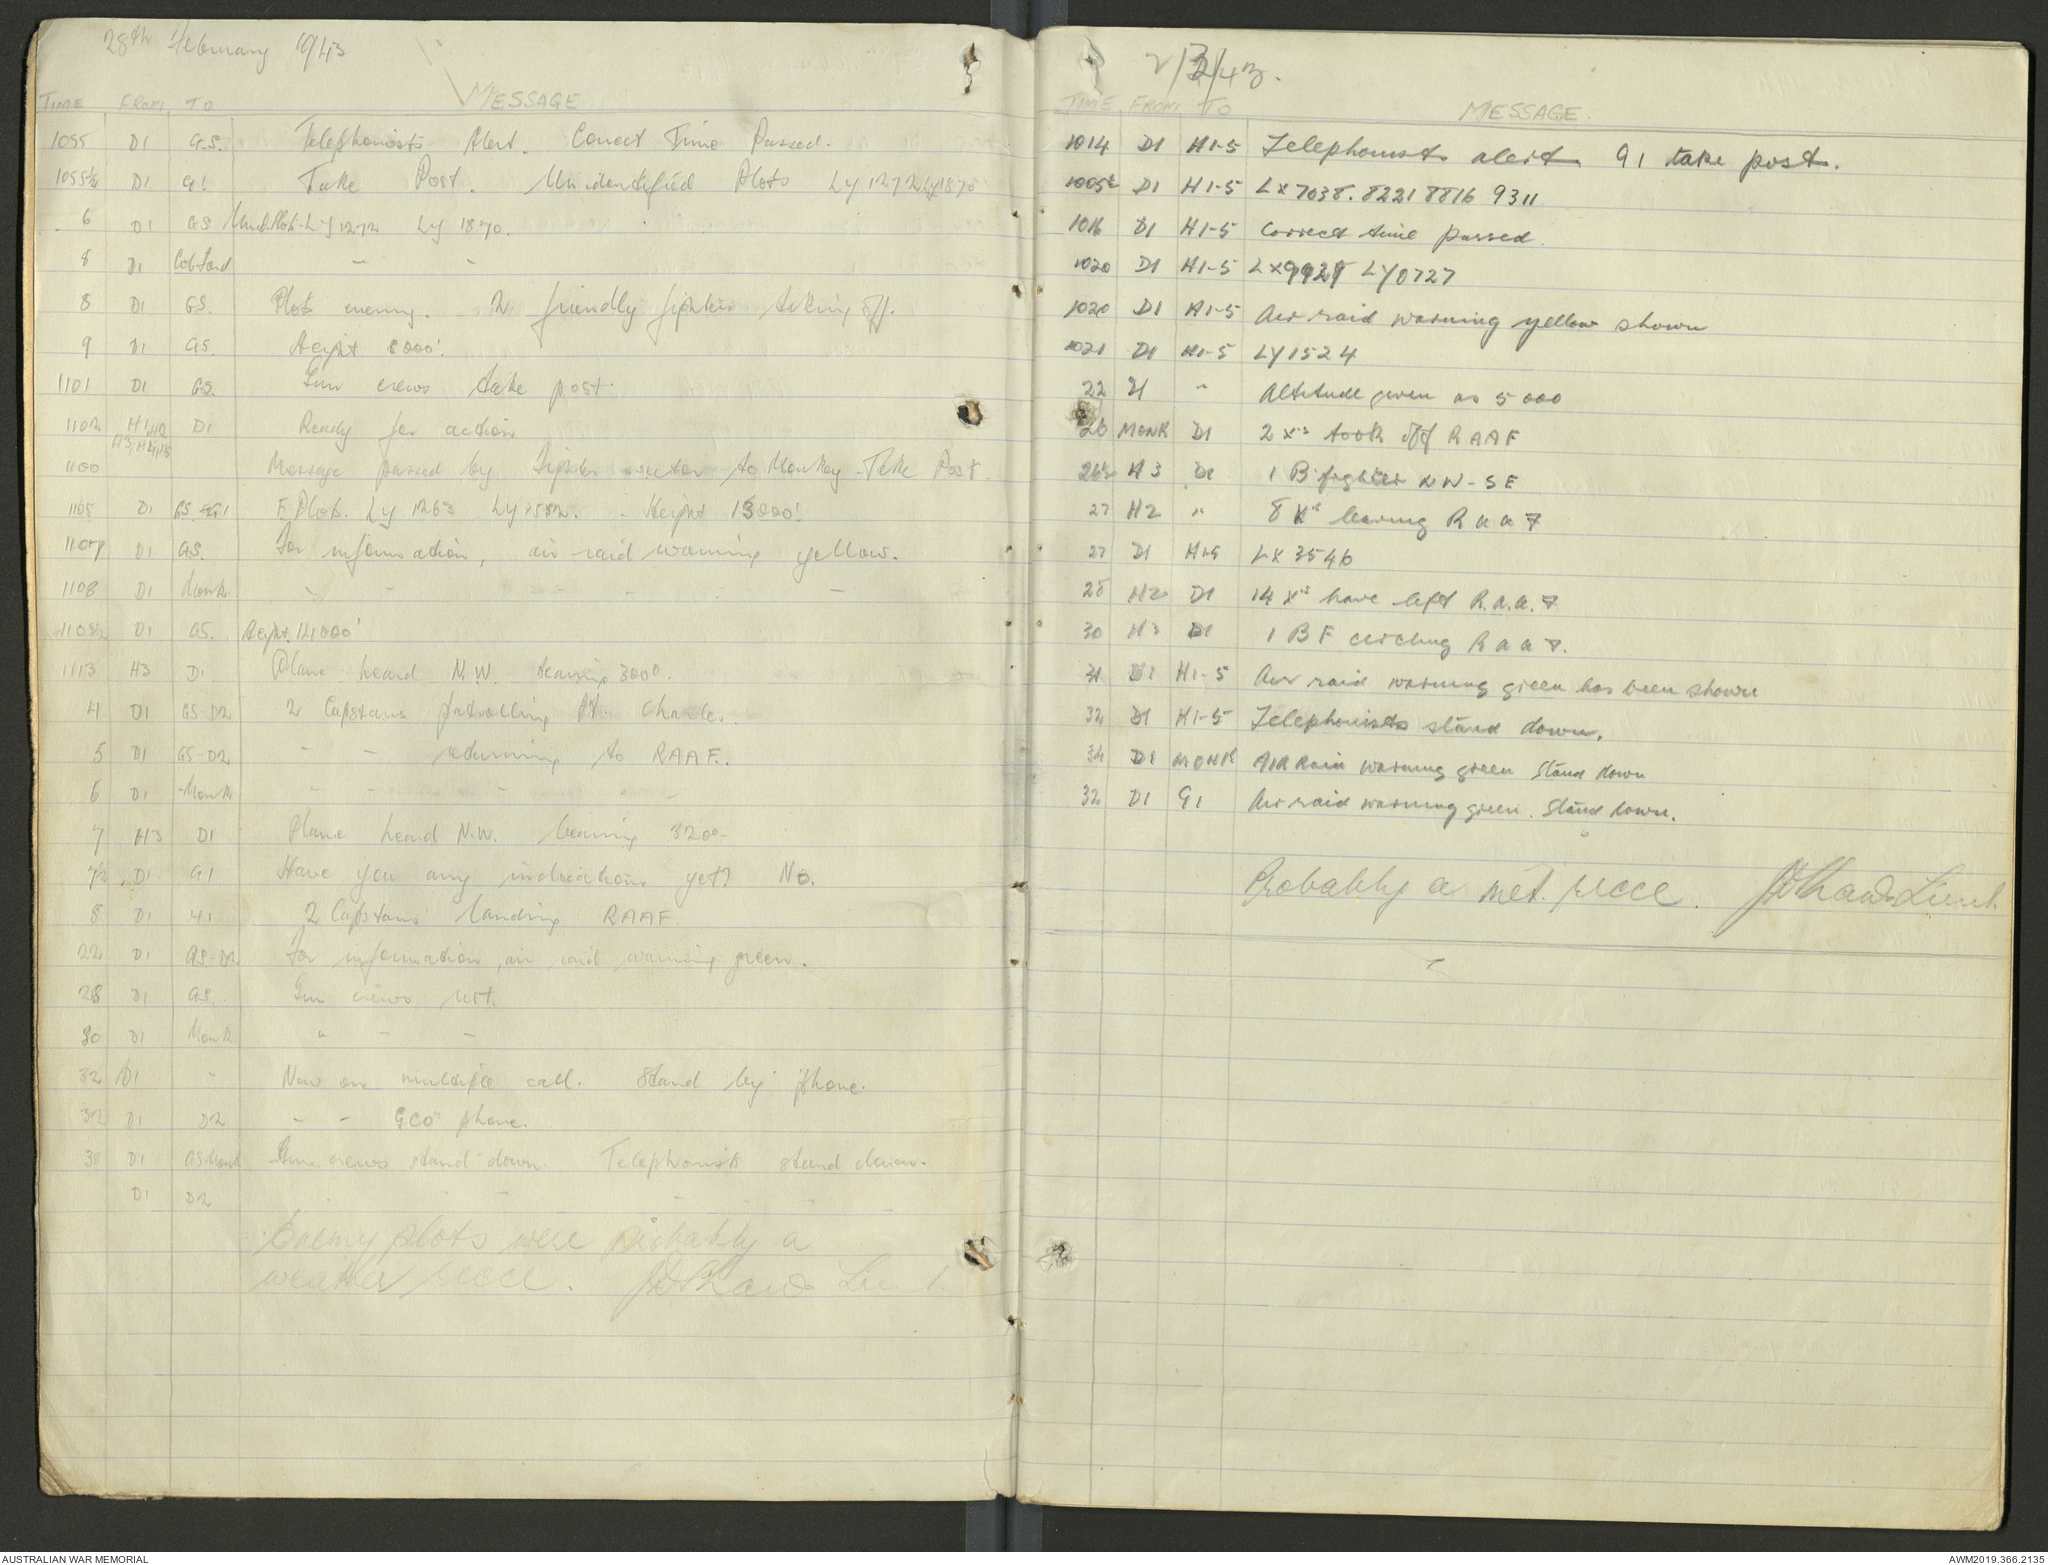 28th February 1943
TIME FROM TO MESSAGE
1055 D1 GS. Telephonists Alert. Correct Time Passed.
1055½ D1 G1 Take Post. Unidentified Plots LY1272 LY1870
6 D1 GS Unid. Plots - LY1272 LY 1870.
8 D1 - -
8 D1 GS. Plots enemy. 2 friendly fighters taking off.
9 D1 GS. Height 8000'.
1101 D1 GS. Gun crews take post.
1102 H1, H2 H3, H4, H5 D1 Ready for action
1100 Message passed by Fighter sector to Monkey - Take Post.
1105 D1 GS-G1 E. Plots. LY 1263 LY1552. - Height 13000'.
1107 D1 GS. For information, air raid warning yellow.
1108 D1 Monk - - - - - -
1108½ D1 GS. Height. 14000'
1113 H3 D1 Plane heard N.W. bearing 3000.
4 D1 GS-D2 2 Capstans patrolling Pt. Charles.
5 D1 GS-D2 - - returning to RAAF.
6 D1 Monk - - - - - -
7 H3 D1 Plane heard N.W. bearing 3200-
7½ D1 G1 Have you any indications yet? No.
8 D1 H1 2 Capstans landing RAAF.
22 D1 GS-D2 For information, air raid warning green.
28 D1 GS. Gun crews rest.
30 D1 Monk " - -
32 D1 - Now on multiple call. Stand by phone.
32 D1 D2 - - GCO" phone.
38 D1 GS Monk Gun crews stand down. Telephonists stand down.
D1 D2 - - - - -
Enemy plots were probably a
weather recce. Lieut.
2/3/43.
TIME FROM TO MESSAGE.
1014 D1 H1-5 Telephonists alert. G1 take post.
1005½ D1 H1-5 LX7038. 8221 8816 9311
1016 D1 H1-5 Correct time passed.
1020 D1 H1-5 LX9929 LY0727
1020 D1 H1-5 Air raid warning yellow shown
1021 D1 H1-5 LY1524
22 D1 " Altitude given as 5000
26 MONK D1 2 Xs took off RAAF
26½ H3 D1 1 B fighter NW-SE
27 H2 " 8 Xs leaving RAAF
27 D1 H1-5 LX 3546
28 H2 D1 14 Xs have left R.A.A.F.
30 H3 D1 1 BF circling RAAF.
31 D1 H1-5 Air raid warning green has been shown
32 D1 H1-5 Telephonists stand down.
34 D1 MONK AIR Raid warning green Stand down
32 D1 G1 Air raid warning green. Stand down.
Probably a met. recce. Lieut.
AUSTRALIAN WAR MEMORIAL
AWM2019.366.2135